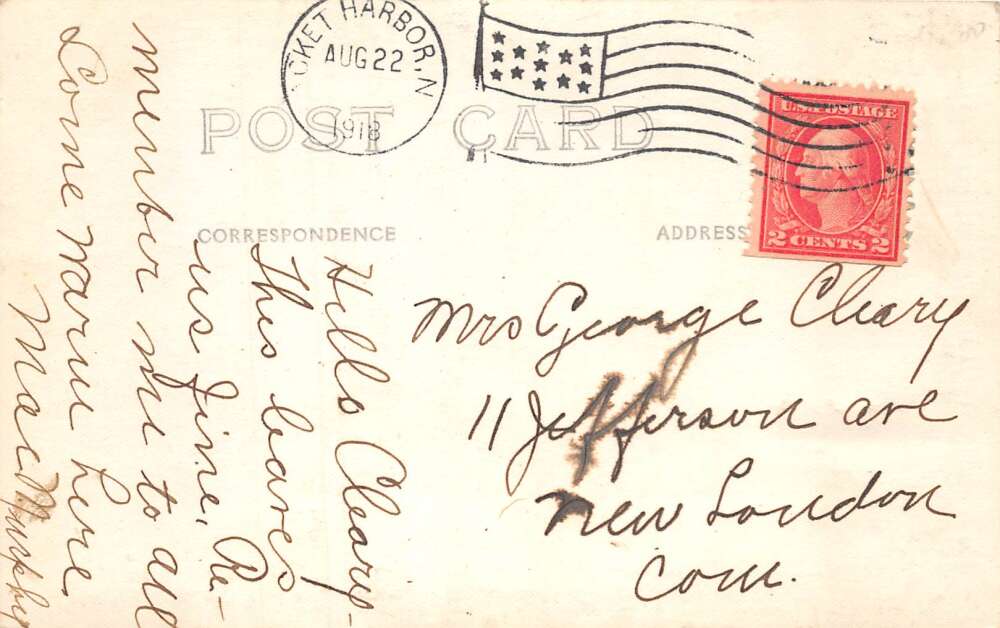 CKET HARBOR, N
AUG 22
1918
POST CARD
U.S. POSTAGE
2 CENTS 2
CORRESPONDENCE
ADDRESS
Hello Cleary-
This leaves
us fine. Re-
member me to all
Some warm here.
Mae Murphy
Mrs George Cleary
11 Jefferson ave
New London
Conn.